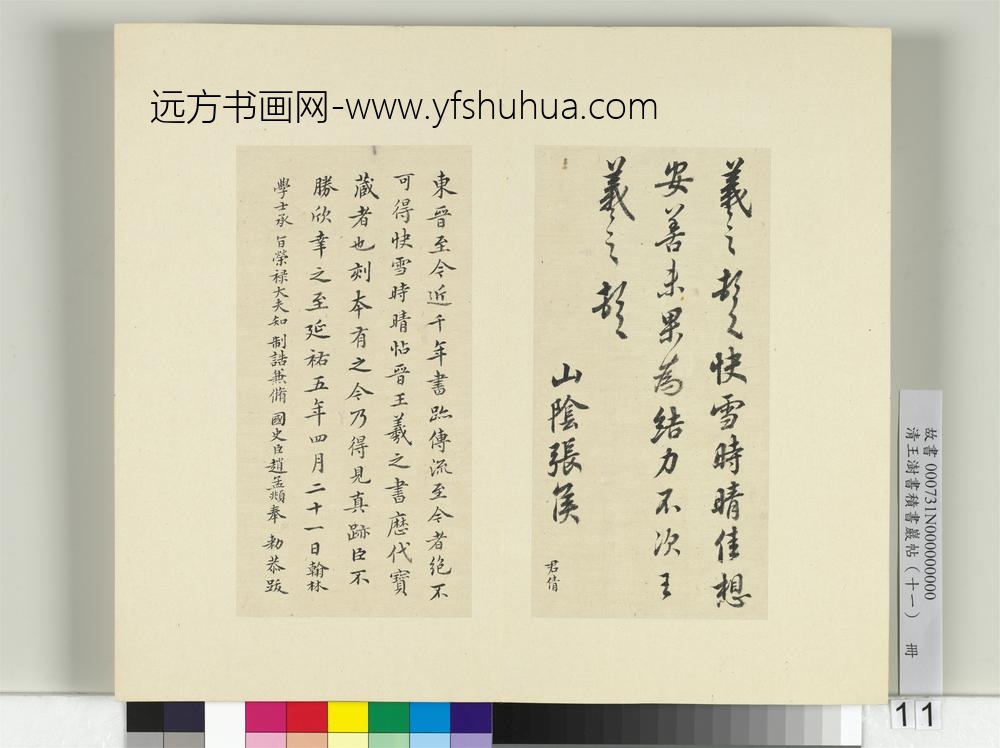 远方书画网-www.yfshuhua.com
羲之頓首快雪時晴佳想
安善未果為結力不次王
羲之頓首
山陰張侯
君倩
東晉至今近千年書跡傳流至今者絶不
可得快雪時晴帖晉王羲之書歷代寶
藏者也刻本有之今乃得見真跡臣不
勝欣幸之至延祐五年四月二十一日翰林
學士承旨榮禄大夫知制誥兼脩國史臣趙孟頫奉勑恭跋
故書 000731N000000000
清王澍書積書巖帖(十一) 冊
11